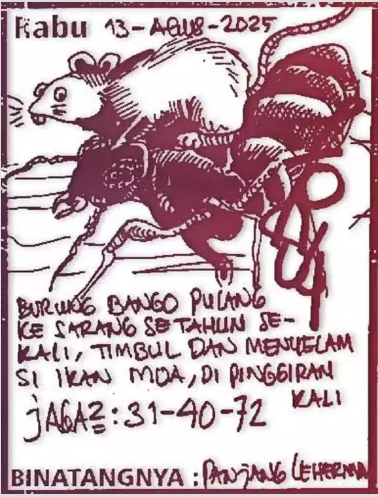 Rabu 13-AGUS-2025
BURUNG BANGO PULANG
KE SARANG SETAHUN SE-
KALI, TIMBUL DAN MENYELAM
SI IKAN MOA, DI PINGGIRAN
KALI
JAGA2: 31-40-72
BINATANGNYA : PANJANG LEHERNYA